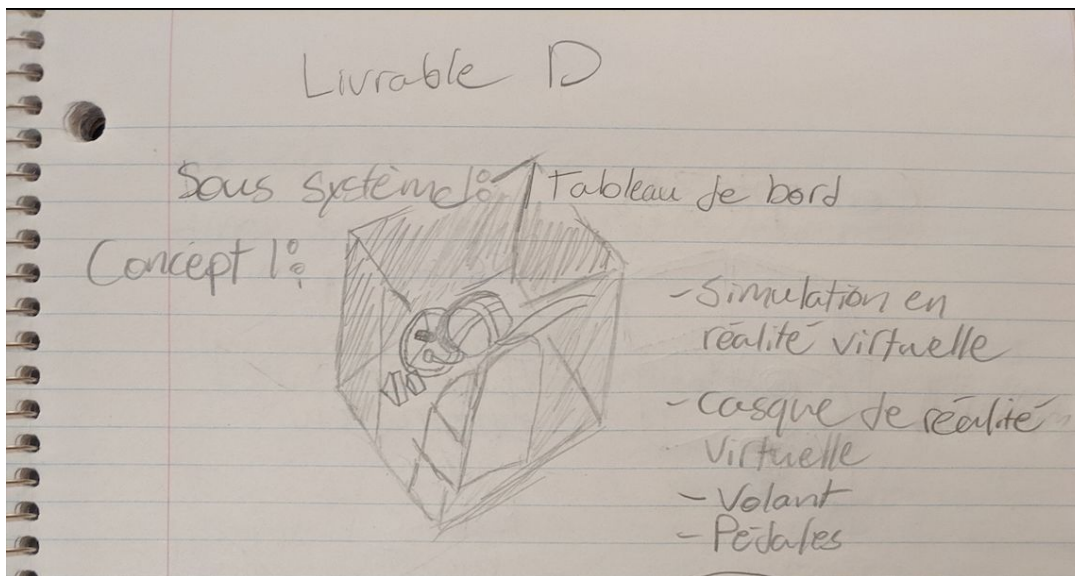 Livrable D
Sous système 1: Tableau de bord
Concept 1:
- Simulation en
réalité virtuelle
- Casque de réalité
virtuelle
- Volant
- Pédales